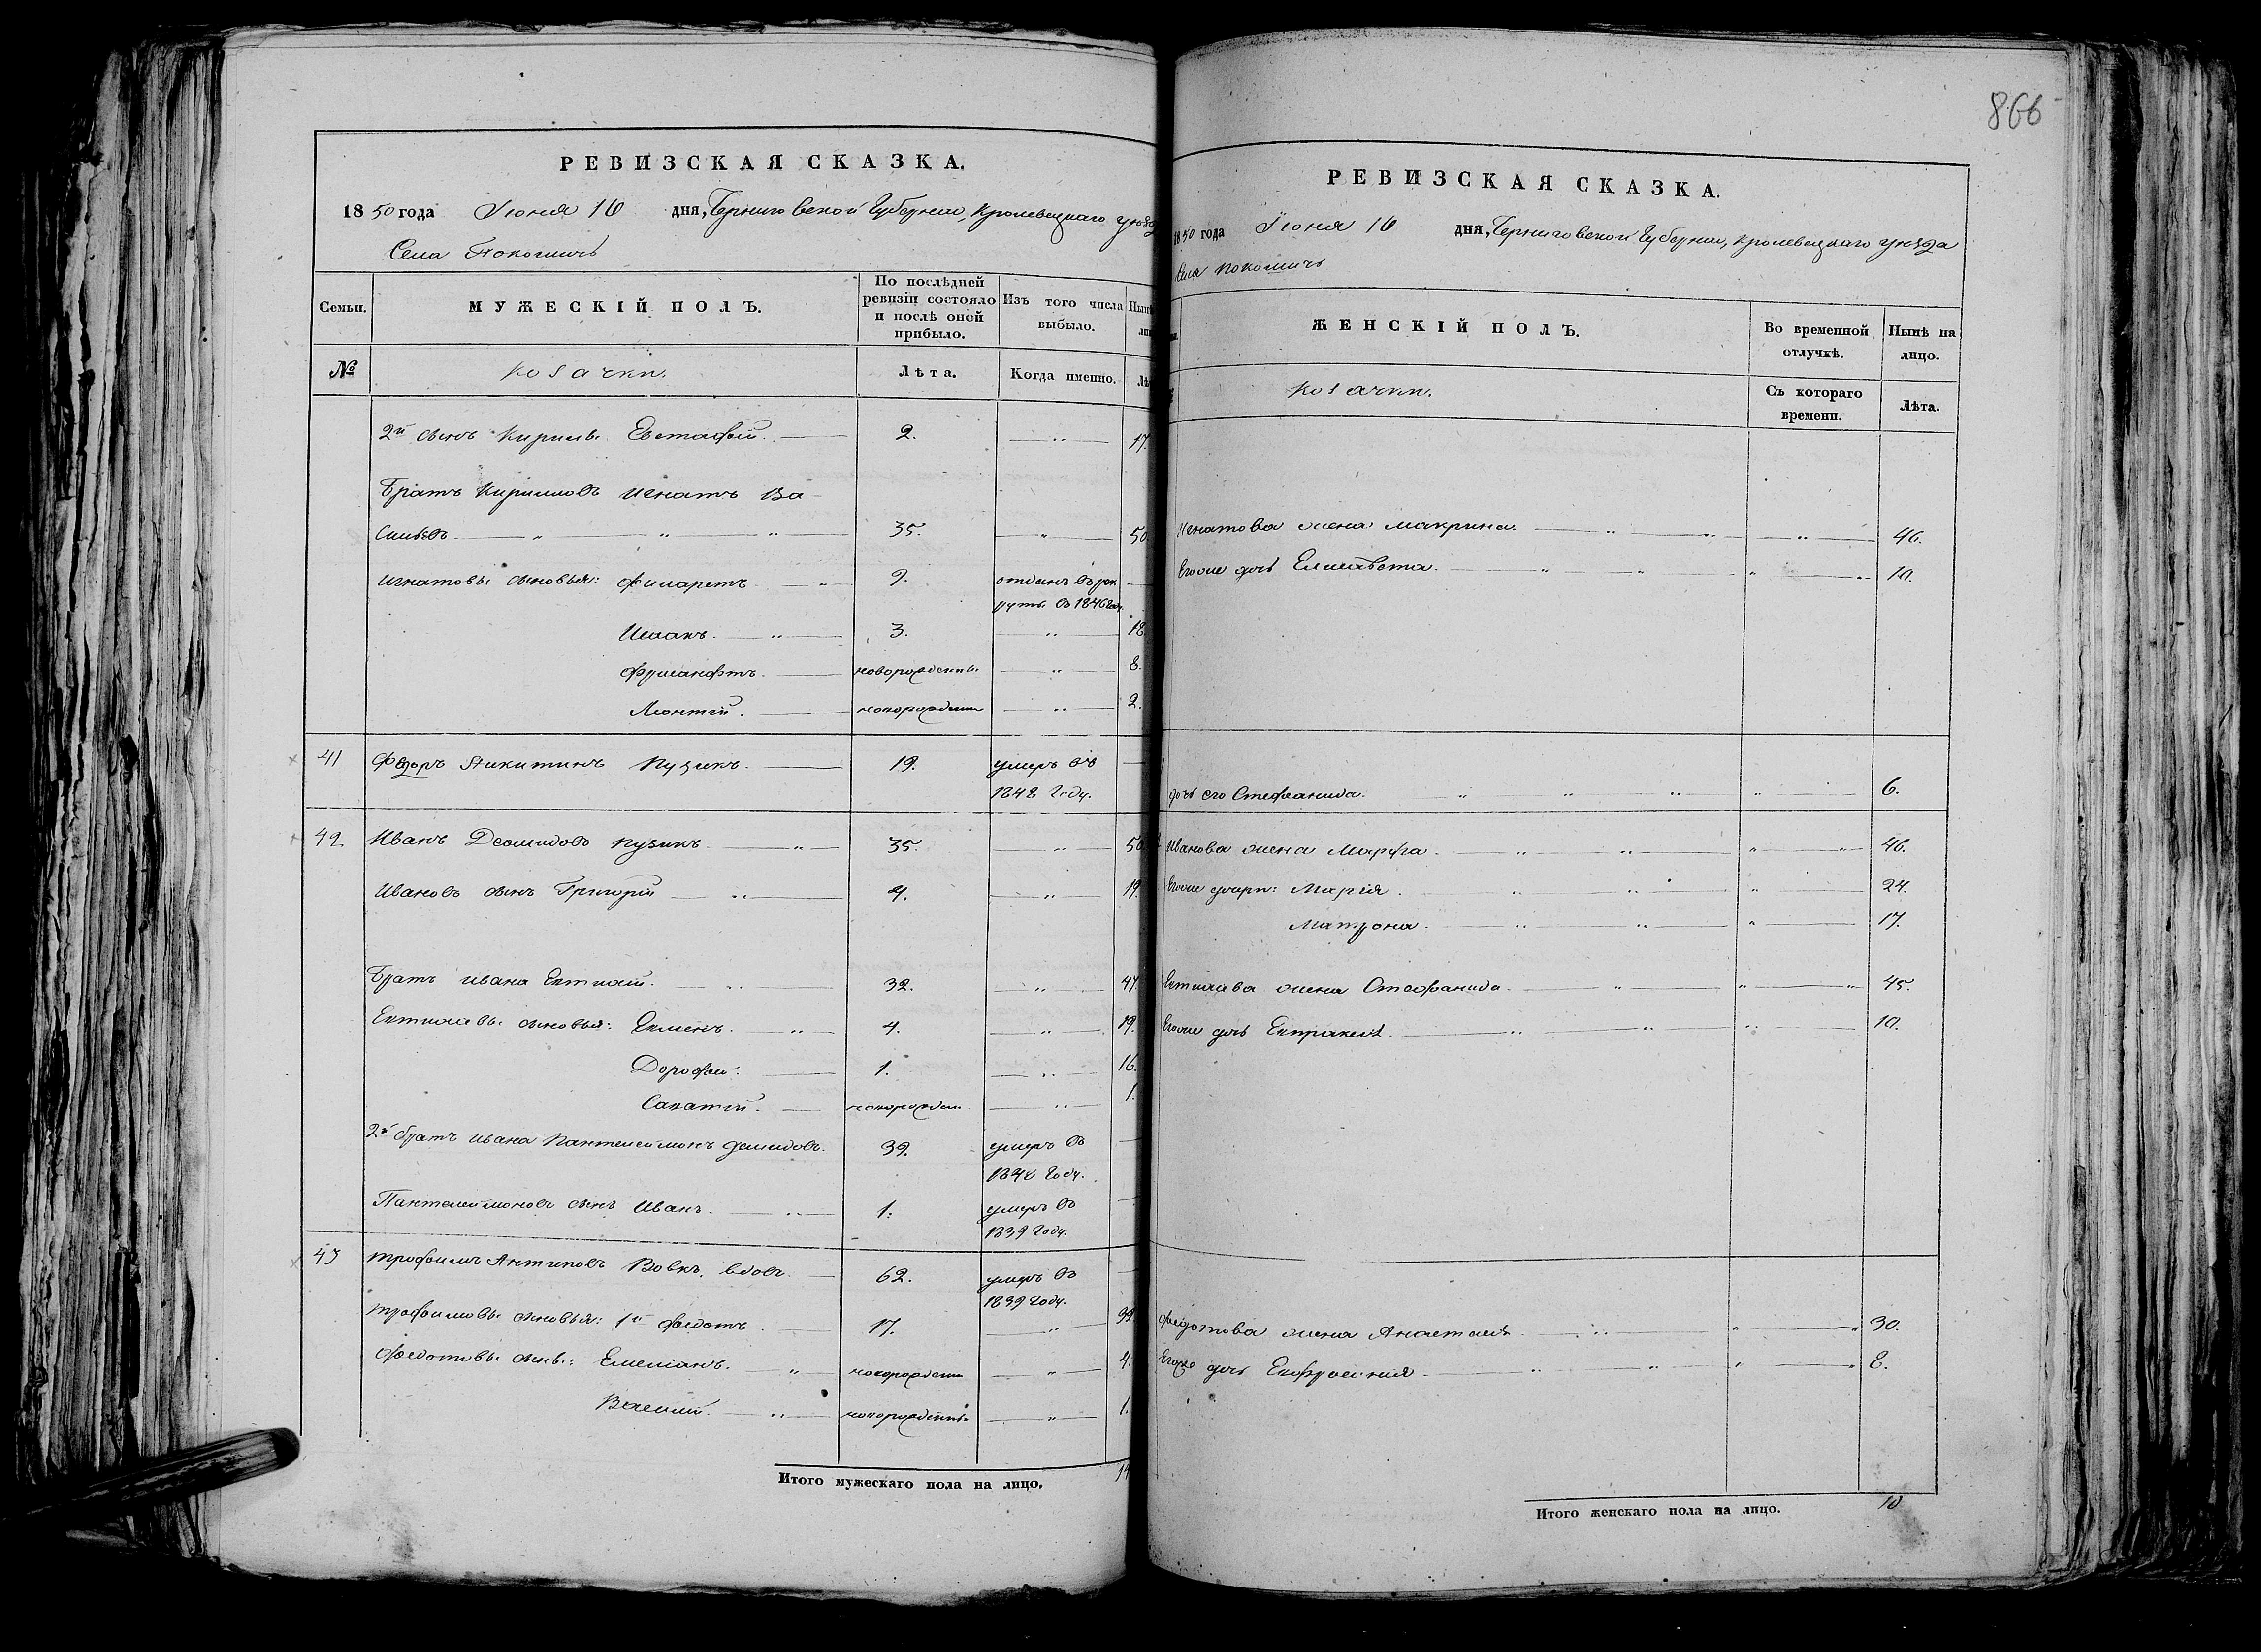 866
РЕВИЗСКАЯ СКАЗКА.
1850 года Июня 16 дня, Черниговской Губернии, Кролевецкаго уѣзда
Села Покошичъ
Семьи. МУЖЕСКІЙ ПОЛЪ. По послѣдней ревизіи состояло и послѣ оной прибыло. Изъ того числа выбыло.
№ Козачки. Лѣта. Когда именно.
2й сынъ Кирилы Евстафій. 2. 17.
Братъ Кирилловъ Игнатъ Ва-
сильевъ 35. 50.
Игнатовы сыновья: Филаретъ 9. отданъ въ рек
руты въ 1846 году
Исаакъ. 3. 18.
новорожденны 8.
Леонтій. новорожден 2.
41 Федоръ Никитинъ Пузикъ. 19. умеръ въ
1848 Году.
42. Иванъ Деомидовъ Пузикъ. 35. 50
Ивановъ сынъ Григорій 4. 19.
Братъ Ивана Евтихій. 32. 47.
сыновья: 4. 19.
Дорофей. 1. 16.
новорожден. 1.
2й братъ Ивана Пантелеймонъ Демидовъ. 39. умеръ въ
Году.
Пантелеймоновъ сынъ Иванъ. 1. умеръ въ
1839 Году.
43 Трофимъ Антиповъ Вовкъ, вдовъ. 62. умеръ въ
1839 Году.
Трофимовы сыновья: 1й Федотъ 17. 32.
Федотовы сын: Емельянъ. новорожден 4.
Василій. новорожденны 1.
Итого мужескаго пола на лицо, 14
РЕВИЗСКАЯ СКАЗКА.
1850 года Іюня 16 дня, Черниговской Губернии, Кролевецкаго уѣзда
Села Покошичъ
ЖЕНСКІЙ ПОЛЪ. Во временной отлучкѣ. Нынѣ на лицо.
Козачки. Съ котораго времени. Лѣта.
Игнатова жена Макрина. 46.
Егоже дочь Елисавета. 10.
дочь его Стефанида. 6.
Иванова жена Марфа. 46.
Егоже дочери: Марія. 24.
Матрона. 17.
жена Стефанида 45.
Егоже дочь Евпраксія 10.
Федотова жена Анастасія 30.
Егоже дочь Евфросинія 8.
Итого женскаго пола на лицо. 10